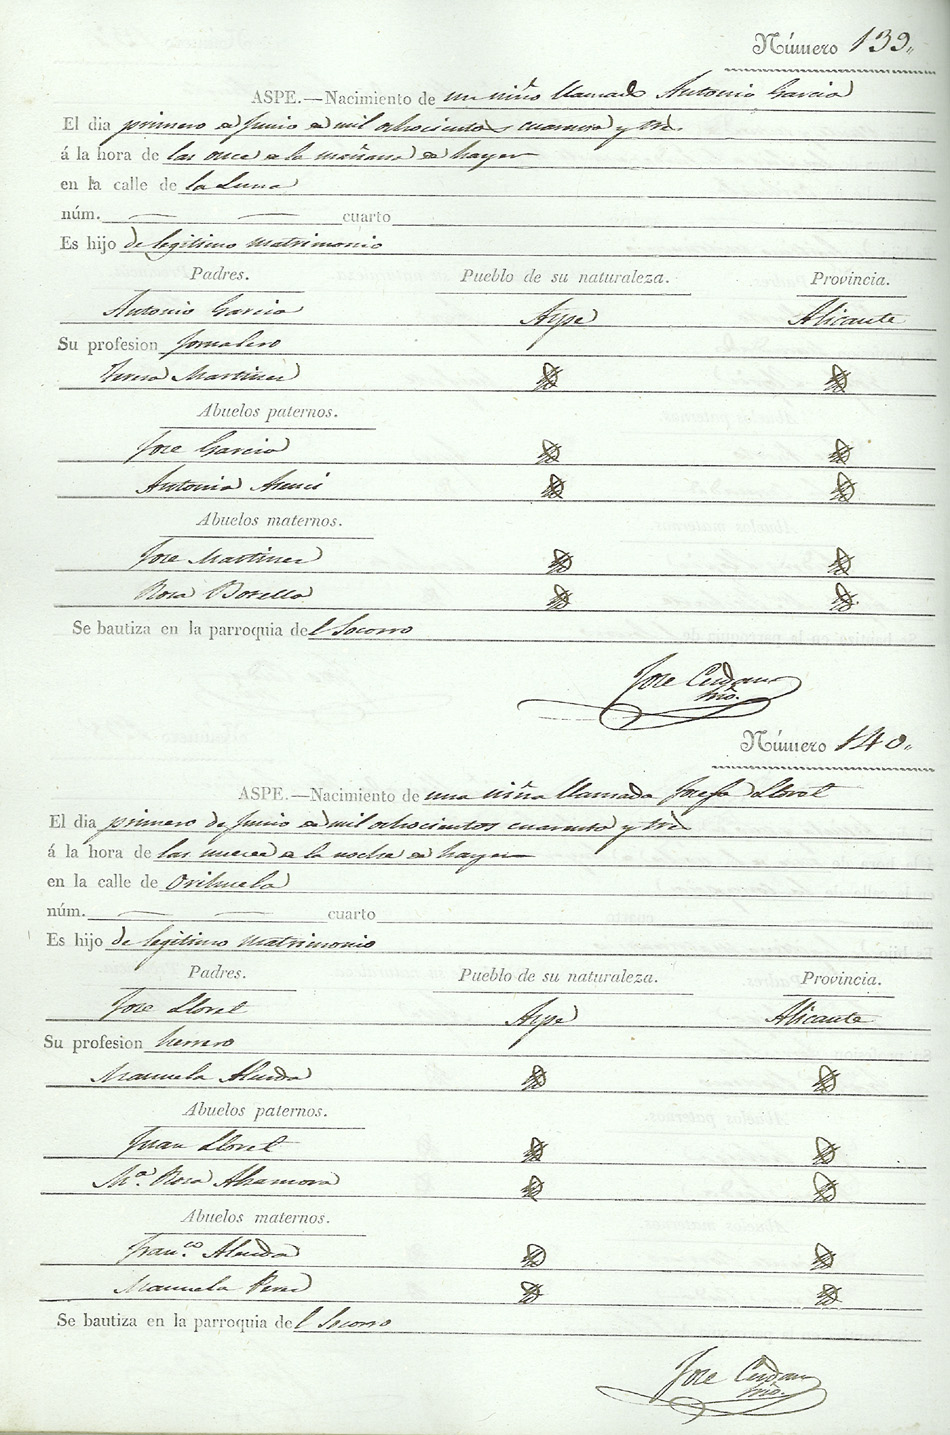 Número 139.
ASPE.—Nacimiento de un niño llamado Antonio Garcia
El dia primero de Junio de mil ochocientos cuarenta y tres
á la hora de las once de la mañana de hayer
en la calle de la Luna
núm. cuarto
Es hijo de legitimo matrimonio
Padres. Pueblo de su naturaleza. Provincia.
Antonio Garcia Aspe Alicante
Su profesion Jornalero
Teresa Martinez Id Id
Abuelos paternos.
Jose Garcia Id Id
Antonia Id Id
Abuelos maternos.
Jose Martinez Id Id
Rosa Botella Id Id
Se bautiza en la parroquia del Socorro
Jose Cerdan
Número 140.
ASPE.—Nacimiento de una niña llamada Josefa Lloret
El dia primero de Junio de mil ochocientos cuarenta y tres
á la hora de las nueve de la noche de hayer
en la calle de Orihuela
núm. cuarto
Es hijo de legitimo matrimonio
Padres. Pueblo de su naturaleza. Provincia.
Jose Lloret Aspe Alicante
Su profesion herrero
Manuela Id Id
Abuelos paternos.
Juan Lloret Id Id
Mª. Rosa Id Id
Abuelos maternos.
Fran.co Id Id
Manuela Perez Id Id
Se bautiza en la parroquia del Socorro
Jose Cerdan